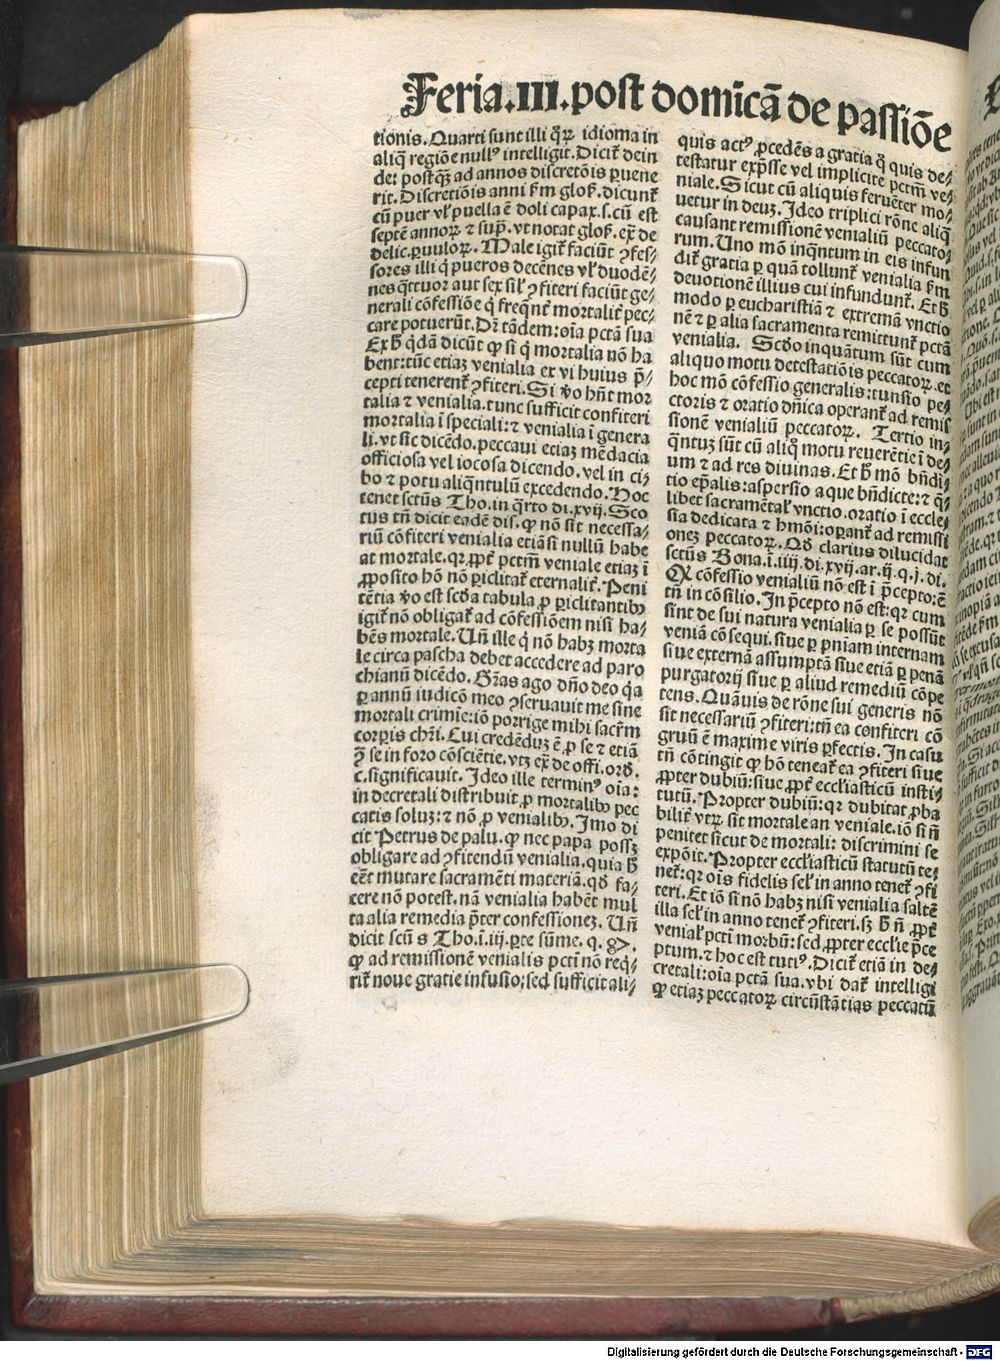 Feria.III.post domīcā de passiōe
tionis. Quarti sunt illi qꝝ idioma in
aliq̄ regiōe nullꝰ intelligit. Dicit̄ dein
de: postq̄ꝫ ad annos discretōis ꝑuene
rit. Discretiōis anni ẜm gloſ. dicunt̄
cū puer vl̓ puella ē doli capax. s. cū est
septē annoꝝ ⁊ supͣ. vt notat gloſ. ex̄ de
delic. puuloꝝ. Male igit̄ faciūt ꝯfeſ/
sores illi q̓ pueros decēnes vl̓ duodē/
nes q̄ttuor aut sex sil̓ ꝯfiteri faciūt ge/
nerali cōfessiōe q̓ freq̄nt̄ mortalit̄ pec/
care potuerūt. Dr̄ tādem: oīa pctā sua
Ex h̓ q̓dā dicūt ꝙ si q̓ mortalia nō ha
bent: tūc etiaꝫ venialia ex vi huius p̄/
cepti tenerent̄ ꝯfiteri. Si v̓o hn̄t mor
talia ⁊ venialia. tunc sufficit confiteri
mortalia ī speciali: ⁊ venialia ī genera
li. vt sic dicēdo. peccaui etiaꝫ mēdacia
officiosa vel iocosa dicendo. vel in ci/
bo ⁊ potu aliq̄ntulū excedendo. Hoc
tenet sctūs Tho. in q̄rto di. xvij. Sco
tus tn̄ dicit eadē dis. ꝙ nō sit necessa/
riū cōfiteri venialia etiāsi nullū habe
at mortale. qꝛ ꝓpt̄ pctm̄ veniale etiaꝫ ī
ꝓposito hō nō ꝑiclitat̄ eternalit̄. Peni
tētia v̓o est scd̓a tabula ꝓ ꝑiclitantibꝰ
igit̄ nō obligat̄ ad cōfessiōem nisi ha/
bēs mortale. Un̄ ille q̓ nō habꝫ morta
le circa pascha debet accedere ad paro
chianū dicēdo. Gr̄as ago dn̄o deo q̓a
ꝑ annū iudicō meo ꝯseruauit me sine
mortali crimīe: iō porrige mihi sacrm̄
corpꝑis chr̄i. Cui credēduꝫ ē ꝓ se ⁊ etiā
ꝯ̄ se in foro cōsciētie. vtꝫ ex̄ de offi. ord̓.
c. significauit. Ideo ille terminꝰ oīa:
in decretali distribuit ꝓ mortalibꝰ pec
catis soluꝫ: ⁊ nō ꝓ venialibꝰ. Imo di
cit Petrus de palu. ꝙ nec papa possꝫ
obligare ad ꝯfitendū venialia. quia h̓
eēt mutare sacramēti materiā. qd̓ fa/
cere nō potest. nā venialia habēt mul
ta alia remedia p̄ter confessioneꝫ. Un̄
dicit scūs Tho. ī. iij. ꝑte sūme. q. 87.
ꝙ ad remissionē venialis pctī nō req̓/
rit̄ noue gratie infusio: sed sufficit ali/
quis actꝰ ꝓcedēs a gratia q̓ quis de/
testatur exp̄sse vel implicite pctm̄ ve/
niale. Sicut cū aliquis feruēter mo/
uetur in deuꝫ. Ideo triplici rōne aliq̄
causant remissionē venialiū peccato/
rum. Uno mō inq̄ntum in eis infun
dit̄ gratia ꝑ quā tollunt̄ venialia ẜm
deuotionē illius cui infundunt̄. Et h̓
modo ꝑ eucharistiā ⁊ extremā vnctio
nē ⁊ ꝑ alia sacramenta remittunt̄ pctā
venialia. Scd̓o inquātum sūt cum
aliquo motu detestatiōis peccatoꝝ. et
hoc mō cōfessio generalis: tunsio pe/
ctoris ⁊ oratio dn̄ica operant̄ ad remis
sionē venialiū peccatoꝝ. Tertio in/
q̄ntuꝫ sūt cū aliq̊ motu reuerētie ī de/
um ⁊ ad res diuinas. Et h̓ mō bn̄di/
tio ep̄alis: aspersio aque bn̄dicte: ⁊ q̄/
libet sacramētal̓ vnctio. oratio ī eccle/
sia dedicata ⁊ hm̄oi: oꝑant̄ ad remissi
oneꝫ peccatoꝝ. Qd̓ clarius dilucidat
sctūs Bona. ī. iiij. di. xvij. ar. ij. q. j. di.
Qꝛ cōfessio venialiū nō est ī p̄cepto: ē
tn̄ in cōsilio. In p̄cepto nō est: qꝛ cum
sint de sui natura venialia ꝑ se possūt
veniā cōsequi. siue ꝑ pn̄iam internam
siue externā assumptā siue etiā ꝑ penā
purgatorij siue ꝑ aliud remediū cōpe
tens. Quāuis de rōne sui generis nō
sit necessariū ꝯfiteri: tn̄ ea confiteri cō
gruū ē maxime viris ꝑfectis. In casu
tn̄ cōtingit ꝙ hō teneat̄ ea ꝯfiteri siue
ꝓpter dubiū: siue ꝓpt̄ eccl̓iasticū insti/
tutū. Propter dubiū: qꝛ dubitat ꝓba
bilit̄ vtꝝ sit mortale an veniale. iō si n̄
penitet sicut de mortali: discrimini se
expōit. Propter eccl̓iasticū statutū te/
net̄: qꝛ oīs fidelis sel̓ in anno tenet̄ ꝯfi
teri. Et iō si nō habꝫ nisi venialia saltē
illa sel̓ in anno tenet̄ ꝯfiteri. sꝫ h̓ n̄ ꝓpt̄
venial̓ pctī morbū: sed ꝓpter eccl̓ie p̄ce
ptum. ⁊ hoc est tutiꝰ. Dicit̄ etiā in de/
cretali: oīa pctā sua. vbi dat̄ intelligi
ꝙ etiaꝫ peccatoꝝ circūstātias peccatū
Digitalisierung gefördert durch die Deutsche Forschungsgemeinschaft - DFG